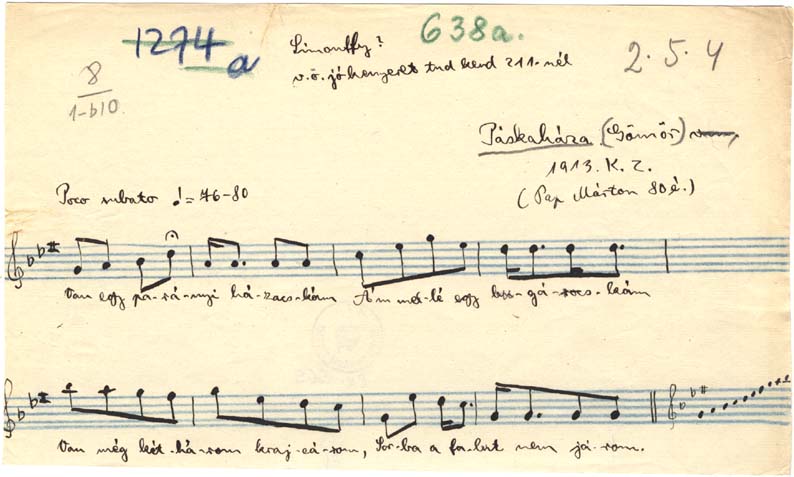 1274 a
638a.
Limonffy?
v.ö. jó kenyeret tud kend 211. nél
2. 5. 4
8
1-b10
Páskaháza (Gömör)
1913. K. Z.
(Pap Márton 80 é.)
Poco rubato ♩= 76-80
Van egy pa-rá-nyi há-zacs-kám Á'm mel-lé egy
Van még két-há-rom kraj-cá-rom, Sor-ba a fa-lut nem já-rom.